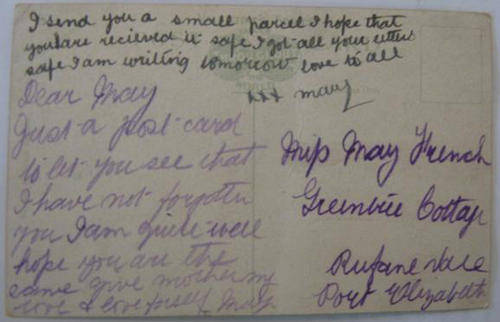 I send you a small parcel I hope that
you are recieved it safe I got all your letters
safe I am writing tomorrow love to all
xxx mary
Dear May
Just a post card
to let you see that
I have not forgotten
you I am quite well
hope you are the
same give mother my
love & love yourself Mary
Miss May French
Cottage
Rufane Vale
Port Elizabeth